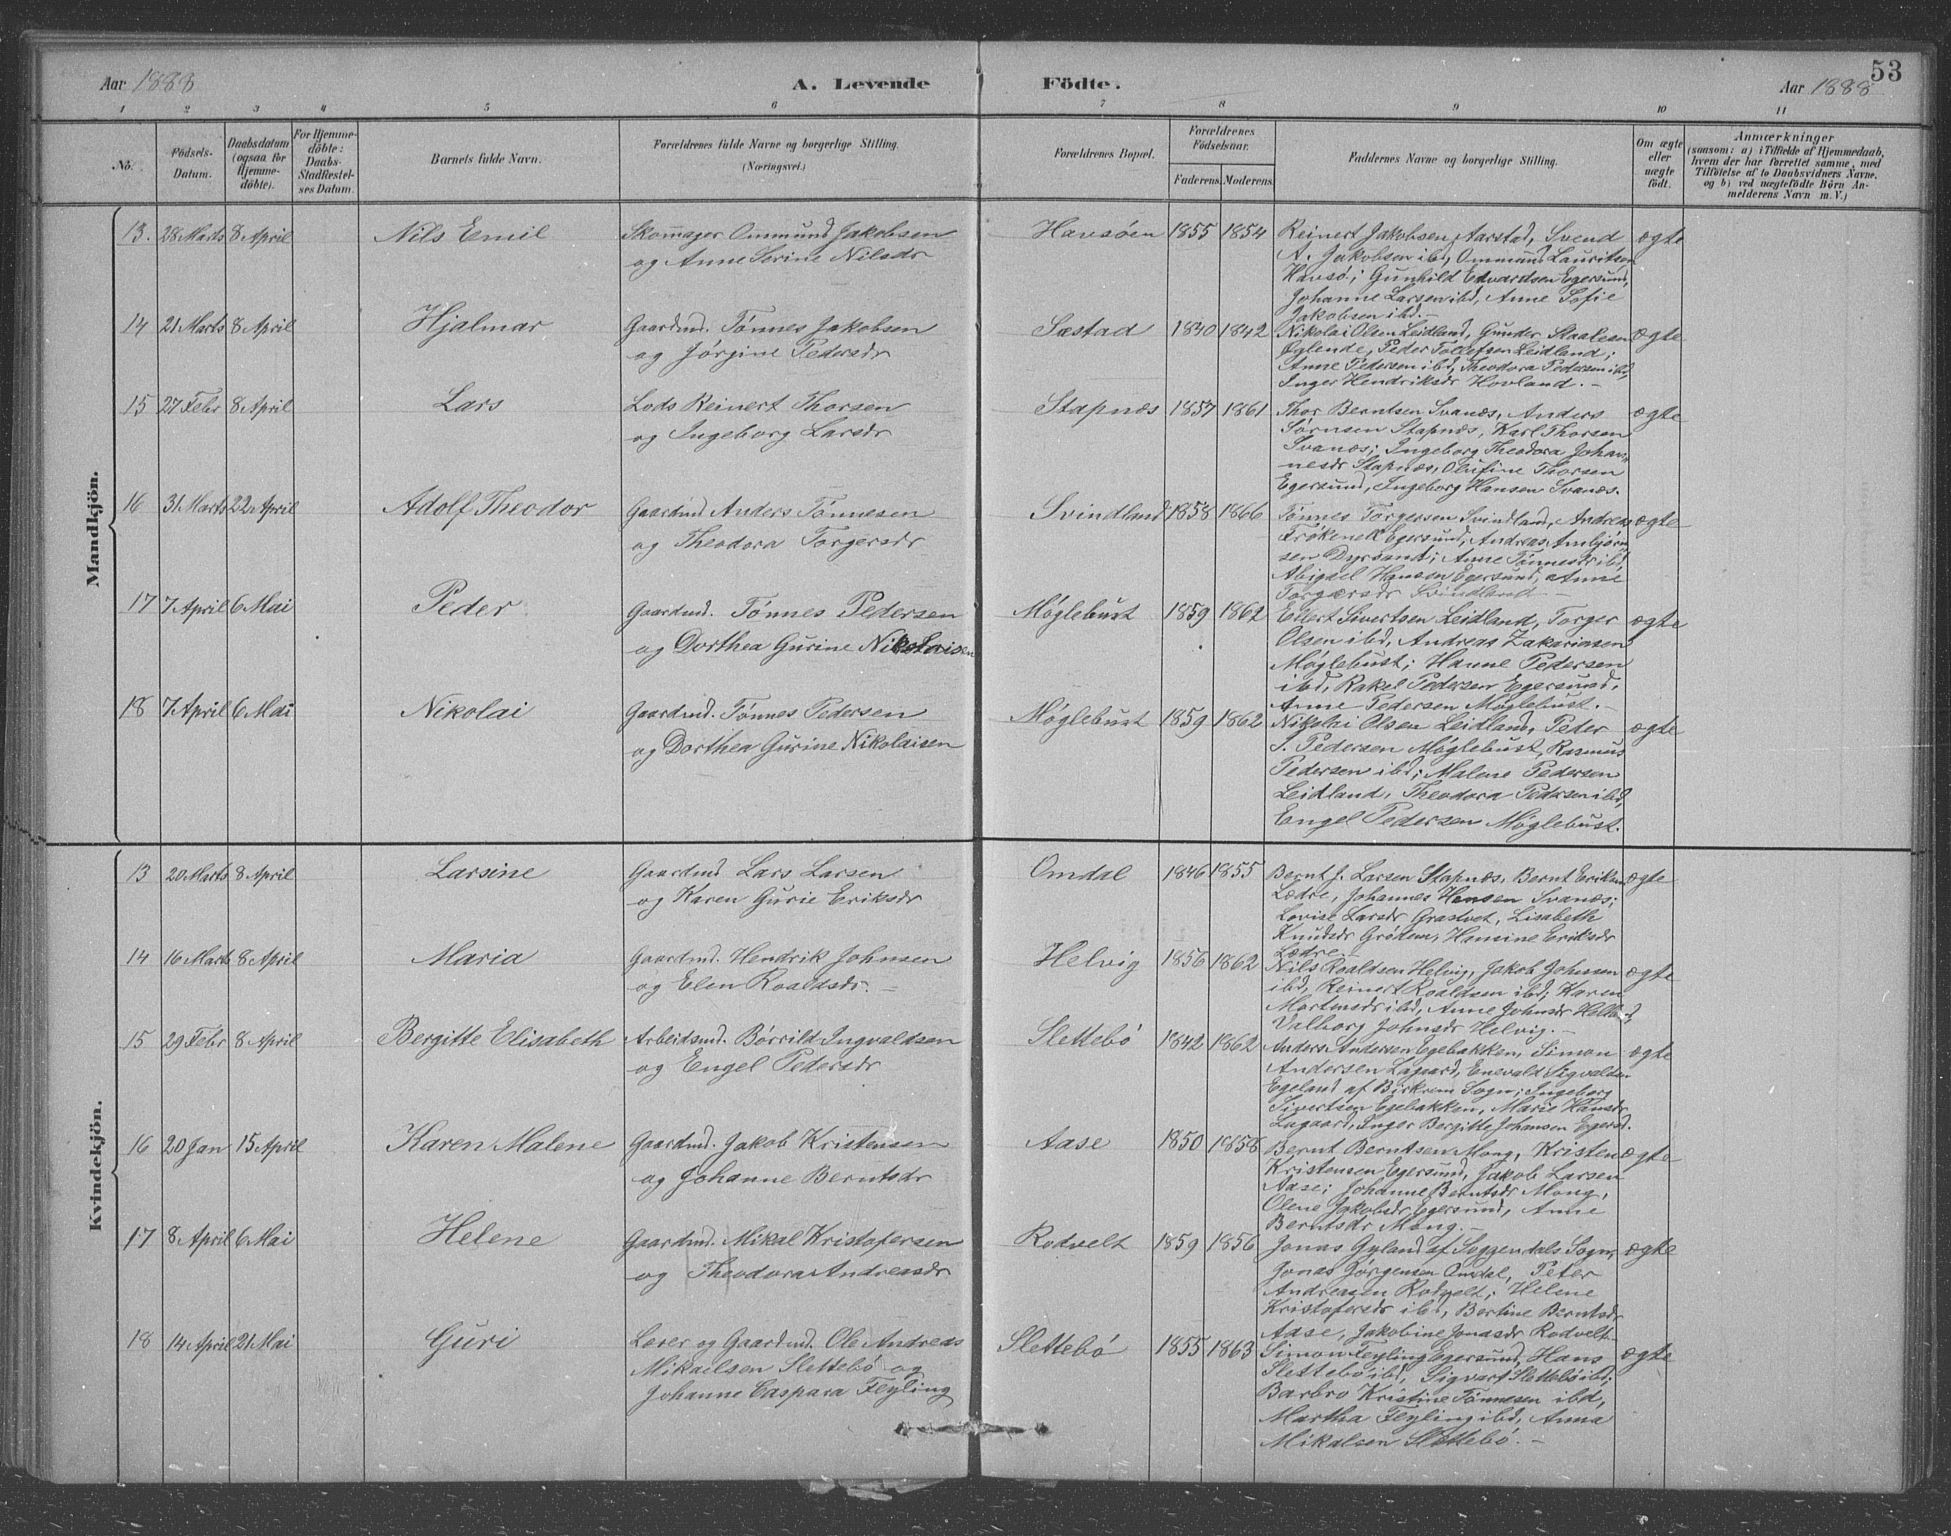 53
Aar 1888
A. Levende Födte.
Aar 1888
1 2 3 4 5 6 7 8 9 10 11
No.
Födsels-Datum.
Daabsdatum (ogsaa for Hjemme-döbte).
For Hjemme-döbte: Daabs-Stadfestel-ses Datum.
Barnets fulde Navn.
Forældrenes fulde Navne og borgerlige Stilling. (Næringsvei.)
Forældrenes Bopæl.
Forældrenes Födselsaar.
Faderens. Moderens.
Faddernes Navne og borgerlige Stilling.
Om ægte eller uægte födt.
Anmærkninger
(saasom: a) i Tilfælde af Hjemmedaab, hvem der har forrettet samme, med Tilföielse af to Daabsvidners Navne, og b) ved uægtefödte Börn An-melderens Navn m. V.)
Mandkjön.
13. 28 Marts 8 April Nils Emil Skomager Ommund Jakobsen Havsöen 1855 1854 Reinert Jakobsen Aarstad, Svend ægte
og Anne Serine Nilsdr A. Jakobsen ibd, Ommund Lauritsen
Havsö; Gunhild Edvardsen Egersund,
Johanne Larsen ibd, Anne Sofie
Jakobsen ibd.-
14 21 Marts 8 April Hjalmar Gaardmd. Tönnes Jakobsen Sæstad 1840 1842 Nikolai Olsen Leidland, Gunder Staalesen ægte
og Jörgine Pedersdr Öglende, Peder Tollefsen Leidland;
Anne Pedersen ibd, Theodora Pedersen ibd,
Inger Hendriksdr Hovland.-
15 27 Febr 8 April Lars Lods Reinert Thorsen Stapnæs 1857 1861 Thor Berntsen Svanæs, Anders ægte
og Ingeborg Larsdr Sörnsen Stapnæs, Karl Thorsen
Svanæs; Ingeborg Theodora Johan-
nesdr Stapnæs, Olufine Thorsen
Egersund, Ingeborg Hansen Svanæs.
16 31 Marts 22 April Adolf Theodor Gaardmd Anders Tönnesen Svindland 1858 1866 Tönnes Torgersen Svindland, Andreas ægte
og Theodora Torgersdr Egersund, Andreas Ambjörn
sen; Anne Tönnesdr ibd,
Abigael Hansen Egersund, Anne
Torgersdr Svindland.-
17 7 April 6 Mai Peder Gaardmd. Tönnes Pedersen Möglebust 1859 1862 Eilert Sivertsen Leidland, Torger ægte
og Dorthea Gurine Nikolaisen Olsen ibd, Andreas Zakariasen
Möglebust; Hanne Pedersen
ibd, Rakel Pedersen Egersund,
Anne Pedersen Möglebust.-
18 7 April 6 Mai Nikolai Gaardmd. Tönnes Pedersen Möglebust 1859 1862 Nikolai Olsen Leidland, Peder ægte
og Dorthea Gurine Nikolaisen S. Pedersen Möglebust, Rasmus
Pedersen ibd; Malene Pedersen
Leidland, Theodora Pedersen ibd,
Engel Pedersen Möglebust.
Kvindekjön.
13 20 Marts 8 April Larsine Gaardmd Lars Larsen Omdal 1846 1855 Bernt J. Larsen Stapnæs, Bernt Eriksen ægte
og Karen Gurie Eriksdr Lædre, Johannes Hansen Svanæs;
Lovise Larsdr Grastvet, Lisabeth
Knudsdr Grödem, Hansine Eriksdr
Lædre.-
14 16 Marts 8 April Maria Gaardmd. Hendrik Johnsen Helvig 1856 1862 Nils Roaldsen Helvig, Jakob Johnsen ægte
og Elen Roaldsdr.- ibd, Reinert Roaldsen ibd; Karen
Martensdr ibd, Anne Johnsdr Helland,
Valborg Johnsdr Helvig.-
15 29 Febr 8 April Bergitte Elisabeth Arbeidsmd. Börrild Ingvaldsen Slettebö 1842 1862 Anders Andersen Egebakken, Simon ægte
og Engel Pedersdr Andersen Lagaard, Enevald Sigvaldsen
Egeland af Birkrem Sogn; Ingeborg
Sivertsen Egebakken, Marie Hansdr
Lagaard, Inger Bergitte Johansen Egersd.
16 20 Jan 15 April Karen Malene Gaardmd. Jakob Kristensen Aase 1850 1858 Bernt Berntsen Mong, Kristen ægte
og Johanne Berntsdr Kristensen Egersund, Jakob Larsen
Aase; Johanne Berntsdr Mong,
Olene Jakobsdr Egersund, Anne
Berntsdr Mong.-
17 8 April 6 Mai Helene Gaardmd. Mikal Kristofersen Rodvelt 1859 1856 Jonas Gyland af Soggendals Sogn, ægte
og Theodora Andreasdr Jonas Jörgensen Omdal, Peter
Andreasen Rodvelt; Helene
Kristofersdr ibd, Bertine Berntsdr
Aase, Jakobine Jonasdr Rodvelt
18 14 April 21 Mai Guri Lærer og Gaardmd. Ole Andreas Slettebö 1855 1863 Simon Feyling Egersund, Hans ægte
Mikaelsen Slettebö og Slettebö ibd, Sigvart Slettebö ibd;
Johanne Caspara Feyling Barbro Kristine Tönnesen ibd,
Martha Feyling ibd, Anna
Mikalsen Slettebö.-